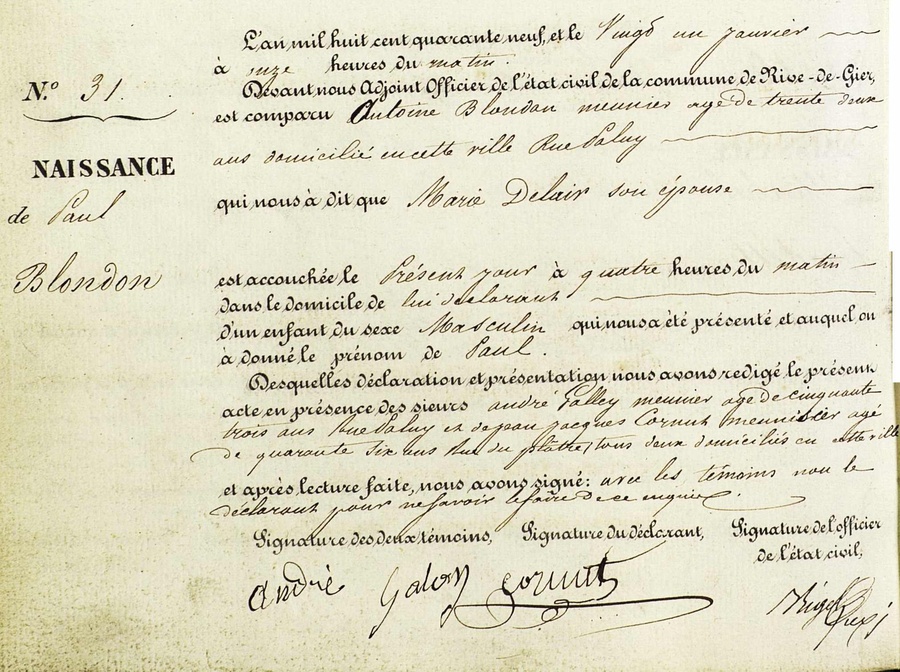 L'an mil huit cent quarante neuf, et le Vingt un janvier
à onze heures du matin.
Devant nous Adjoint Officier de l'état civil de la commune de Rive-de-Gier,
est comparu Antoine Blondon meunier agé de trente deux
ans domicilié en cette ville Rue Paluy
qui nous à dit que Marie Delair son épouse
est accouchée le Présent jour à quatre heures du matin
dans le domicile de lui déclarant
d'un enfant du sexe Masculin qui nous a été présenté et auquel on
à donné le prénom de Paul.
Desquelles déclaration et présentation nous avons redigé le présent
acte en présence des sieurs andré Galley meunier agé de cinquante
trois ans Rue Paluy et de jean jacques Cornut menuisier agé
de quarante six ans Rue du plâtre, tous deux domiciliés en cette ville
et après lecture faite, nous avons signé: avec les témoins non le
déclarant pour ne savoir le faire de ce enquis.
Signature des deux témoins, Signature du déclarant, Signature de l'officier
de l'état civil,
andré Galey Cornut
N.º 31.
NAISSANCE
de Paul
Blondon